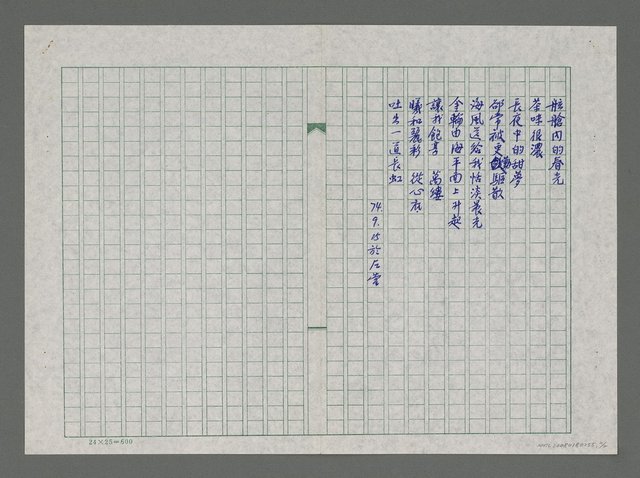 舷艙內的春光
茶味很濃
長夜中的甜夢
卻常被更鼓驅散
海風送給我恬淡晨光
金輪由海平面上升起
讓我飽享 萬縷
曦和麗彩 從心底
吐出一道長虹
74.9.15於左營
24×25=600